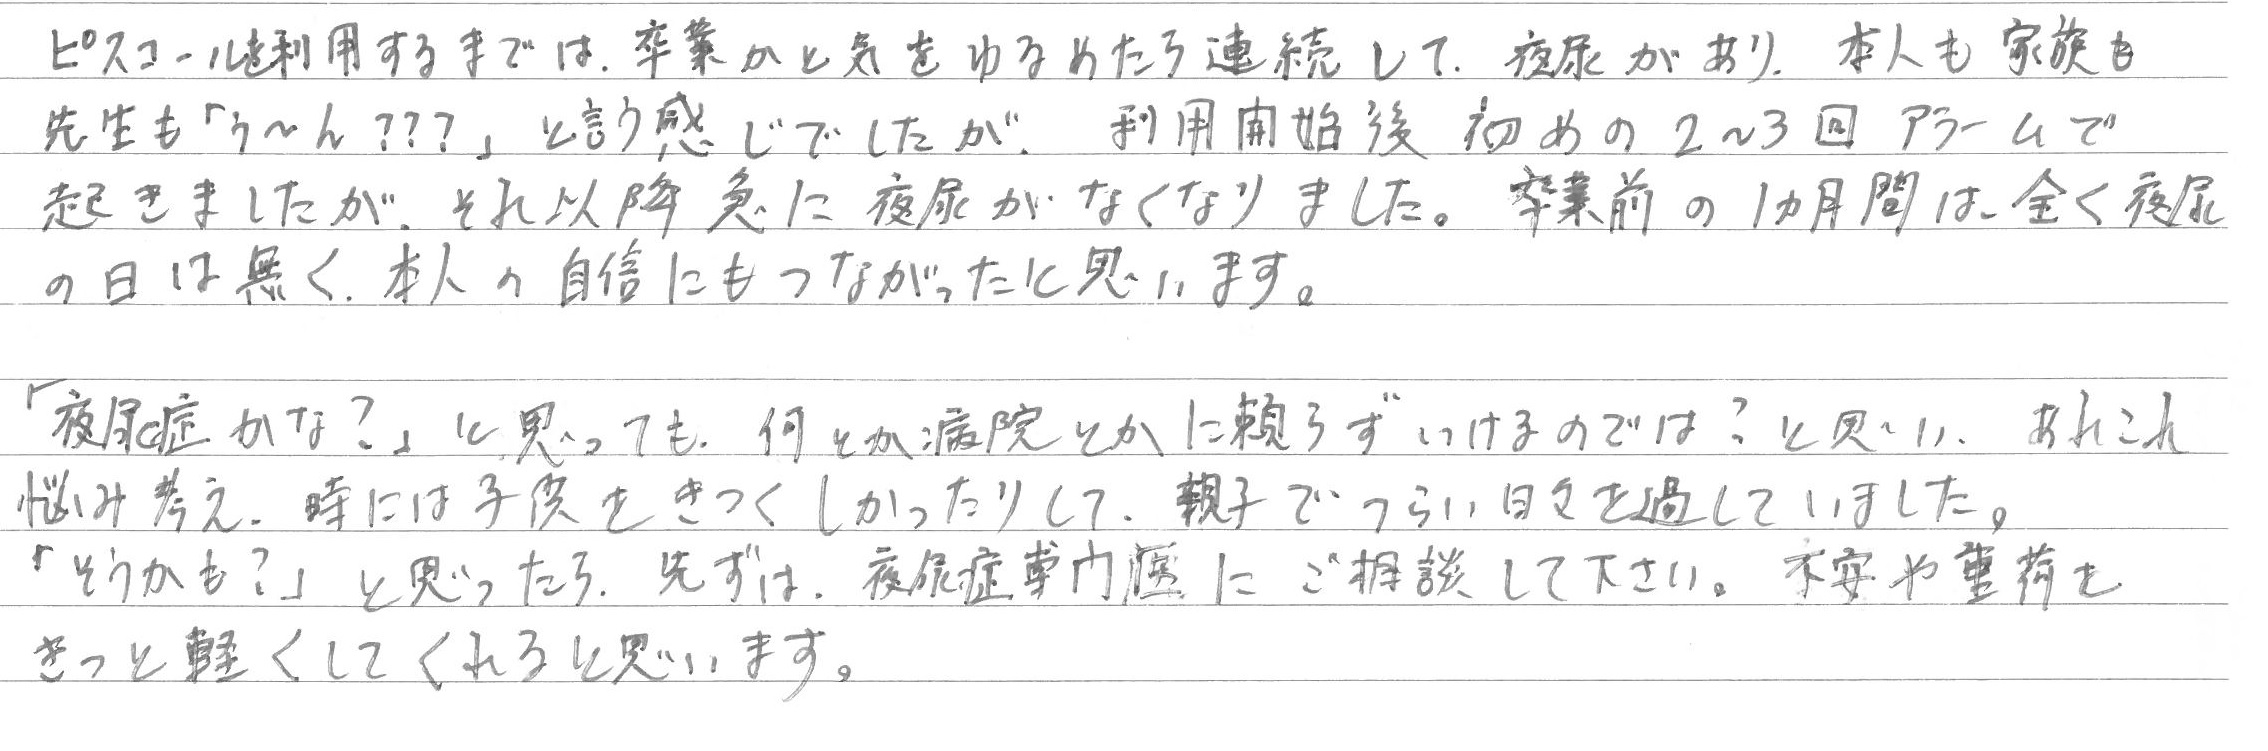 ピスコールを利用するまでは、卒業かと気をゆるめたら連続して、夜尿があり、本人も家族も
先生も「う～ん???」と言う感じでしたが、利用開始後初めの2～3回アラームで
起きましたが、それ以降急に夜尿がなくなりました。卒業前の1カ月間は、全く夜尿
の日は無く、本人の自信にもつながったと思います。
「夜尿症かな?」と思っても、何とか病院とかに頼らずいけるのでは?と思い、あれこれ
悩み考え、時には子供をきつくしかったりして、親子でつらい日々を過していました。
「そうかも?」と思ったら、先ずは、夜尿症専門医にご相談して下さい。不安や重荷を
きっと軽くしてくれると思います。